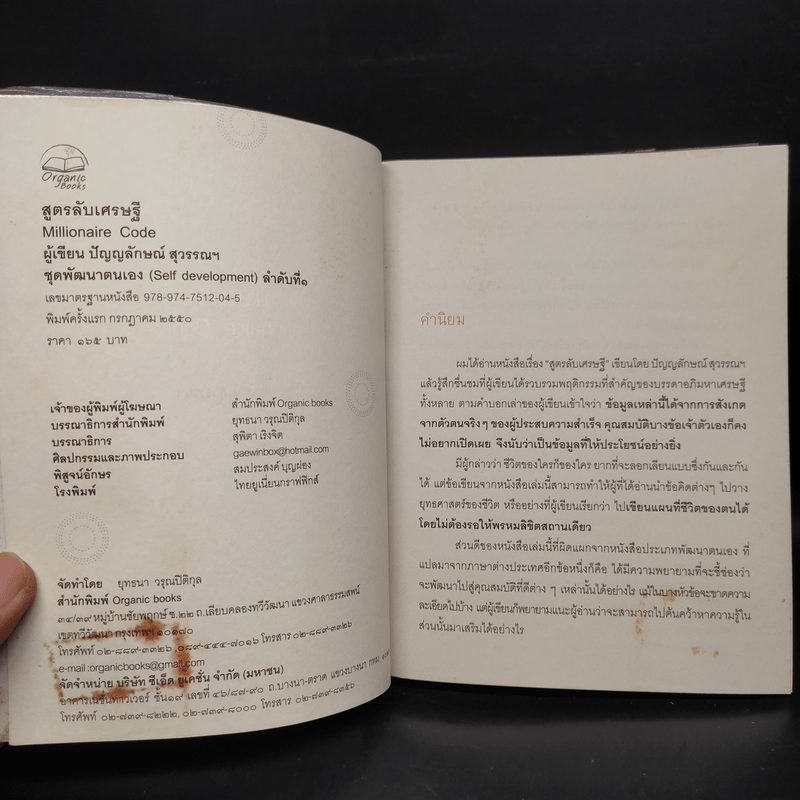 Organic
Books
สูตรลับเศรษฐี
Millionaire Code
ผู้เขียน ปัญญลักษณ์ สุวรรณฯ
ชุดพัฒนาตนเอง (Self development) ลำดับที่๑
เลขมาตรฐานหนังสือ 978-974-7512-04-5
พิมพ์ครั้งแรก กรกฎาคม ๒๕๕๐
ราคา ๑๖๕ บาท
เจ้าของผู้พิมพ์ผู้โฆษณา สำนักพิมพ์ Organic books
บรรณาธิการสำนักพิมพ์ ยุทธนา วรุณปิติกุล
บรรณาธิการ สุพิตา เริงจิต
ศิลปกรรมและภาพประกอบ gaewinbox@hotmail.com
พิสูจน์อักษร สมประสงค์ บุญผ่อง
โรงพิมพ์ ไทยยูเนี่ยนกราฟฟิกส์
จัดทำโดย ยุทธนา วรุณปิติกุล
สำนักพิมพ์ Organic books
๓๔/๓๙ หมู่บ้านชัยพฤกษ์ ซ.๒๒ ถ.เลียบคลองทวีวัฒนา แขวงศาลาธรรมสพน์
เขตทวีวัฒนา กรุงเทพฯ ๑๐๑๗๐
โทรศัพท์ ๐๒-๘๘๙-๓๓๒๖, ๐๘๙-๔๔๔-๗๐๑๖ โทรสาร ๐๒-๘๘๙-๓๓๒๖
e-mail :organicbooks@gmail.com
จัดจำหน่าย บริษัท ซีเอ็ด ยูเคชั่น จำกัด (มหาชน)
อาคารเนชั่นทาวเวอร์ ชั้น๑๙ เลขที่ ๔๖/๘๗-๙๐ ถ.บางนา-ตราด แขวงบางนา กทม.
โทรศัพท์ ๐๒-๗๓๙-๘๒๒๒, ๐๒-๗๓๙-๘๐๐๐ โทรสาร ๐๒-๗๓๙-๘๓๕๖
คำนิยม
ผมได้อ่านหนังสือเรื่อง "สูตรลับเศรษฐี" เขียนโดย ปัญญลักษณ์ สุวรรณฯ
แล้วรู้สึกชื่นชมที่ผู้เขียนได้รวบรวมพฤติกรรมที่สำคัญของบรรดาอภิมหาเศรษฐี
ทั้งหลาย ตามคำบอกเล่าของผู้เขียนเข้าใจว่า ข้อมูลเหล่านี้ได้จากการสังเกต
จากตัวตนจริงๆ ของผู้ประสบความสำเร็จ คุณสมบัติบางข้อเจ้าตัวเองก็คง
ไม่อยากเปิดเผย จึงนับว่าเป็นข้อมูลที่ให้ประโยชน์อย่างยิ่ง
มีผู้กล่าวว่า ชีวิตของใครก็ของใคร ยากที่จะลอกเลียนแบบซึ่งกันและกัน
ได้ แต่ข้อเขียนจากหนังสือเล่มนี้สามารถทำให้ผู้ที่ได้อ่านนำข้อคิดต่างๆ ไปวาง
ยุทธศาสตร์ของชีวิต หรืออย่างที่ผู้เขียนเรียกว่า ไปเขียนแผนที่ชีวิตของตนได้
โดยไม่ต้องรอให้พรหมลิขิตสถานเดียว
ส่วนดีของหนังสือเล่มนี้ที่ผิดแผกจากหนังสือประเภทพัฒนาตนเอง ที่
แปลมาจากภาษาต่างประเทศอีกข้อหนึ่งก็คือ ได้มีความพยายามที่จะชี้ช่องว่า
จะพัฒนาไปสู่คุณสมบัติที่ดีต่าง ๆ เหล่านั้นได้อย่างไร แม้ในบางหัวข้อจะขาดความ
ละเอียดไปบ้าง แต่ผู้เขียนก็พยายามแนะผู้อ่านว่าจะสามารถไปค้นคว้าหาความรู้ใน
ส่วนนั้นมาเสริมได้อย่างไร